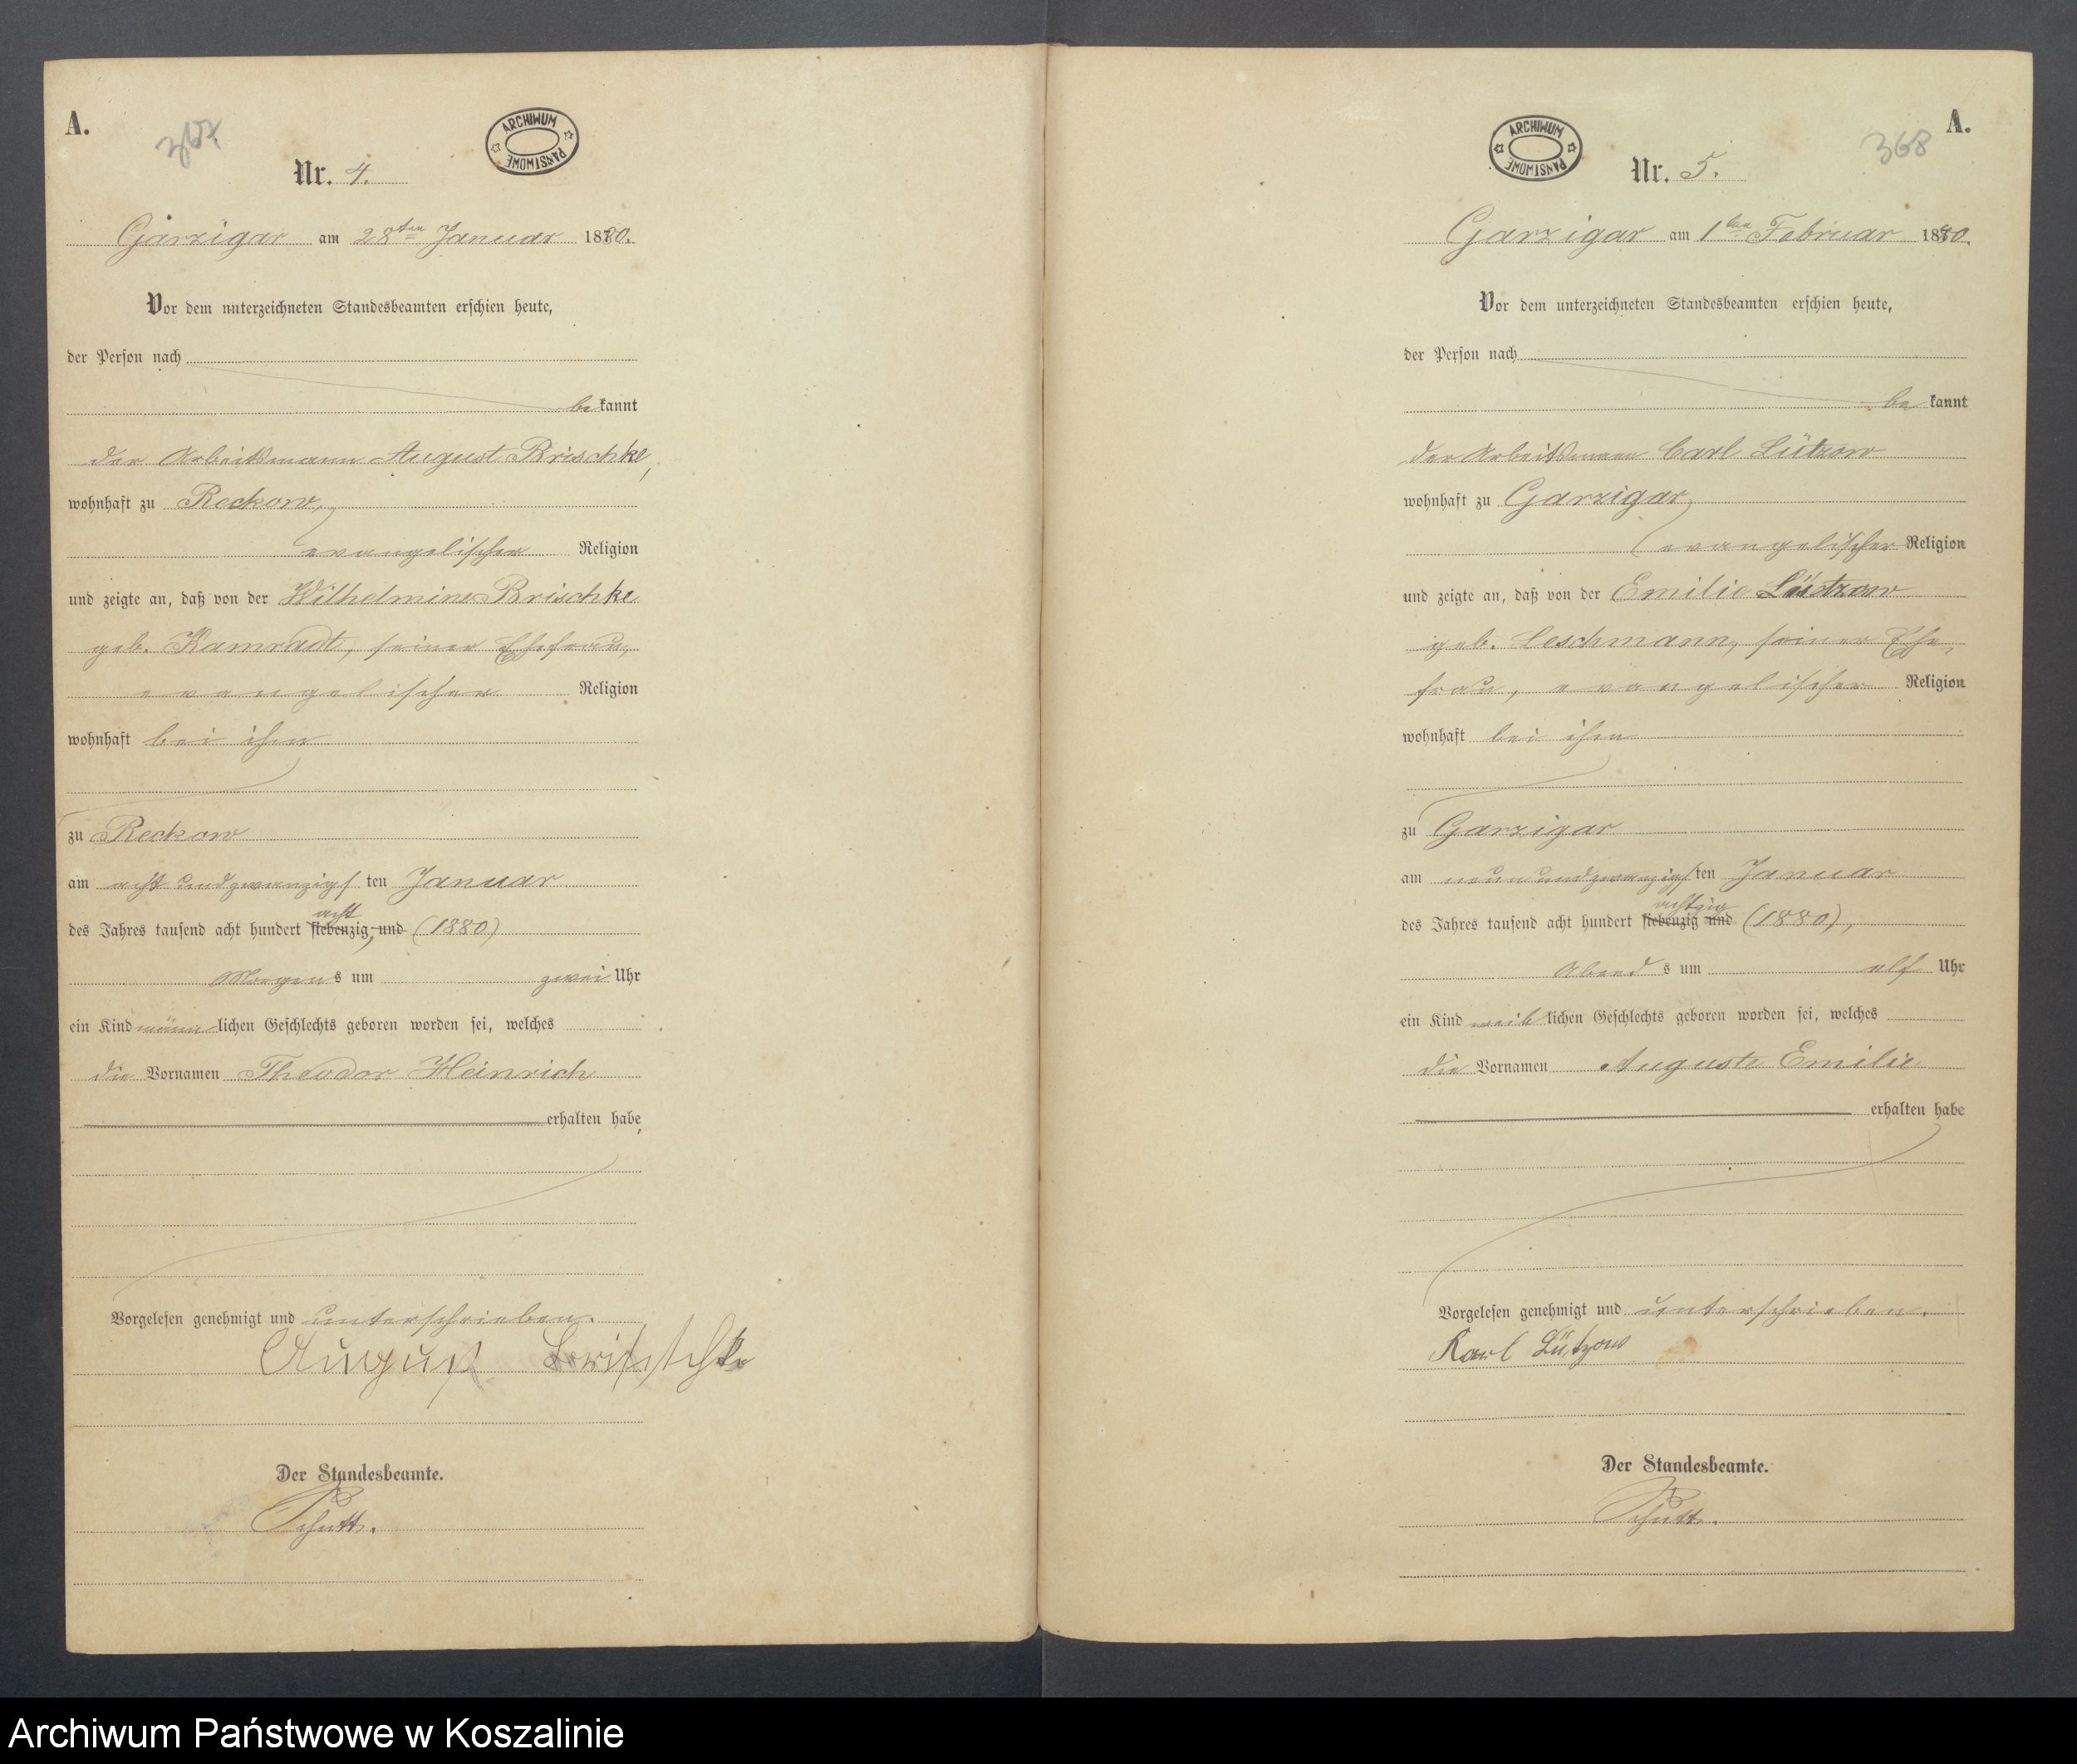 A.
Nr. 4.
ARCHIWUM PAŃSTWOWE
Garzigar am 28ten Januar 1880.
Vor dem unterzeichneten Standesbeamten erschien heute,
der Person nach
bekannt
der Arbeitsmann August Brischke,
wohnhaft zu Reckow,
evangelischer Religion
und zeigte an, daß von der Wilhelmine Brischke
geb. Kamradt, seiner Ehefrau,
evangelischer Religion
wohnhaft bei ihm
zu Reckow
am acht undzwanzigsten Januar
acht
des Jahres tausend acht hundert siebenzig und (1880)
Morgens um zwei Uhr
ein Kind männlichen Geschlechts geboren worden sei, welches
die Vornamen Theodor Heinrich
erhalten habe,
Vorgelesen genehmigt und unterschrieben.
August Brischke
Der Standesbeamte.
A.
368
ARCHIWUM PAŃSTWOWE
Nr. 5.
Garzigar am 1ten Februar 1880.
Vor dem unterzeichneten Standesbeamten erschien heute,
der Person nach
bekannt
der Arbeitsmann Carl Lützow
wohnhaft zu Garzigar,
evangelischer Religion
und zeigte an, daß von der Emilie Lützow
geb. Leschmann, seiner Ehe-
frau, evangelischer Religion
wohnhaft bei ihm
zu Garzigar
am neunundzwanzigsten Januar
achtzig
des Jahres tausend acht hundert siebenzig und (1880),
Abends um elf Uhr
ein Kind weiblichen Geschlechts geboren worden sei, welches
die Vornamen Auguste Emilie
erhalten habe
Vorgelesen genehmigt und unterschrieben.
Karl Lützow
Der Standesbeamte.
Archiwum Państwowe w Koszalinie